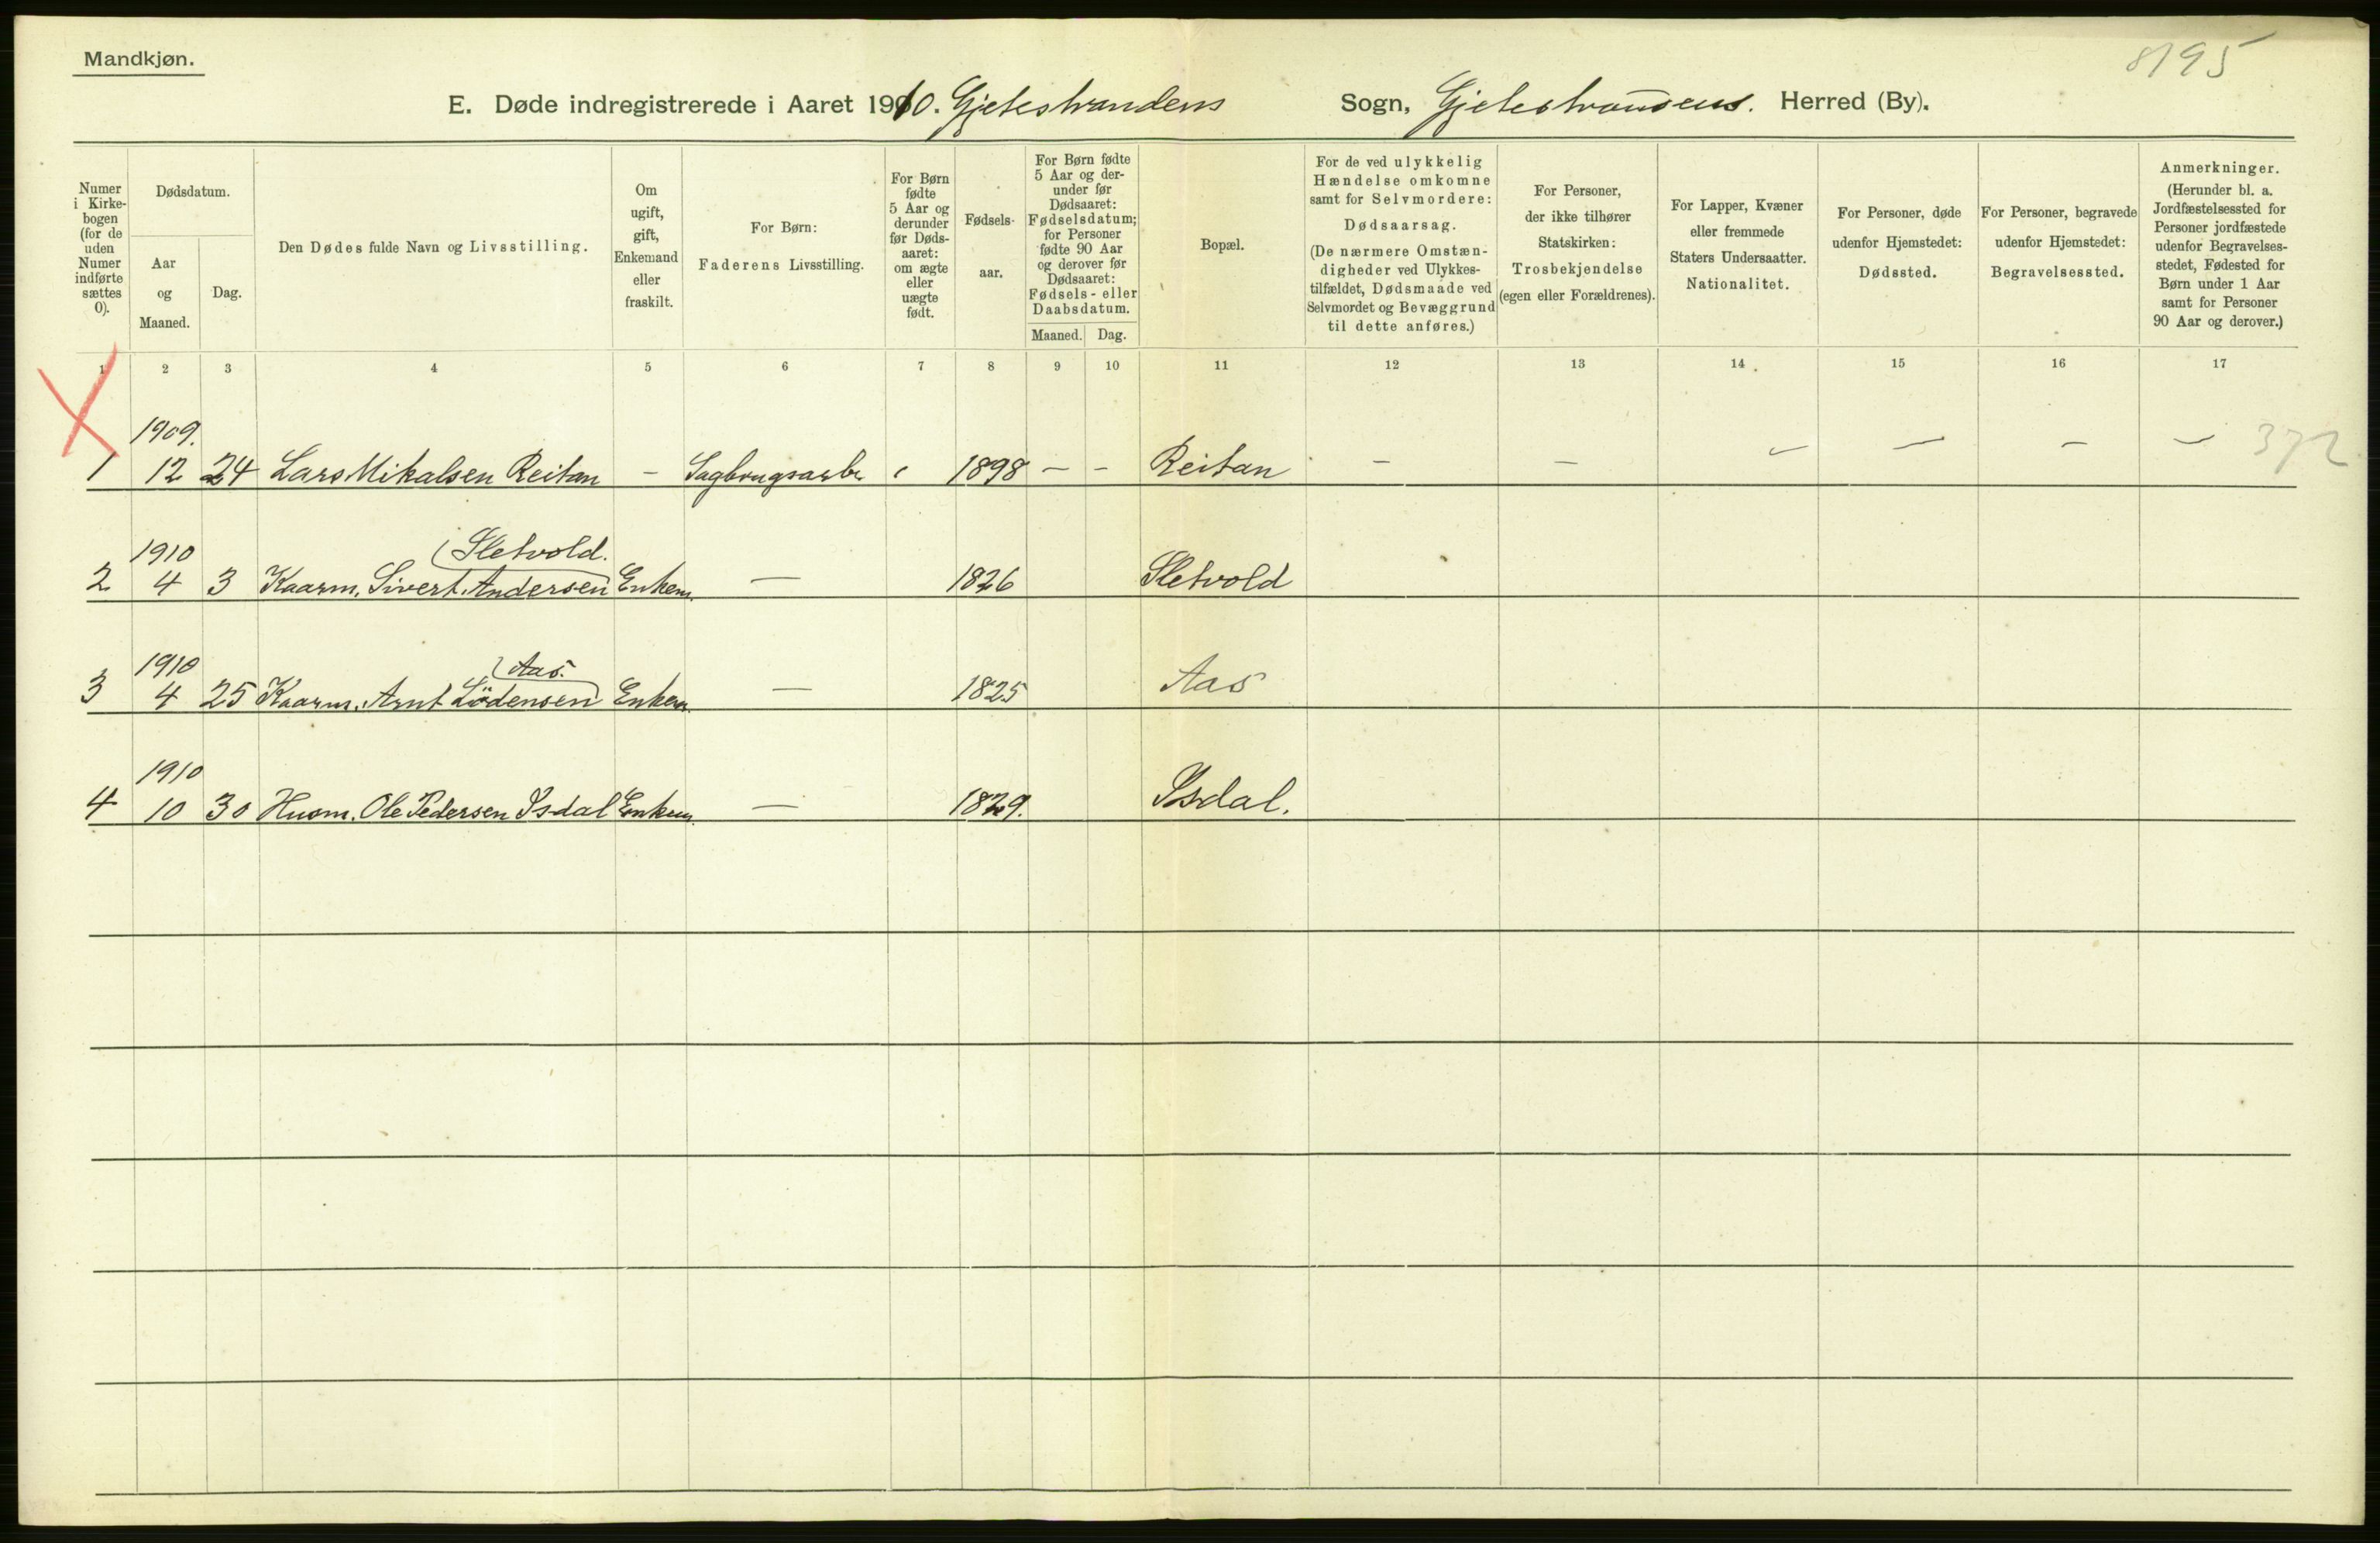 Mandkjøn.
8195
E. Døde indregistrerede i Aaret 1910. Gjetestrandens Sogn, Gjetestrandens. Herred (By).
Numer i Kirkebogen (for de uden Numer indførte sættes 0).
Dødsdatum.
Aar og Maaned.
Dag.
Den Dødes fulde Navn og Livsstilling.
Om ugift, gift, Enkemand eller fraskilt.
For Børn: Faderens Livsstilling.
For Børn fødte 5 Aar og derunder før Dødsaaret: om ægte eller uægte født.
Fødselsaar.
For Børn fødte 5 Aar og derunder før Dødsaaret: Fødselsdatum; for Personer fødte 90 Aar og derover før Dødsaaret: Fødsels- eller Daabsdatum.
Maaned. Dag.
Bopæl.
For de ved ulykkelig Hændelse omkomne samt for Selvmordere: Dødsaarsag. (De nærmere Omstændigheder ved Ulykkestilfældet, Dødsmaade ved Selvmordet og Bevæggrund til dette anføres.)
For Personer, der ikke tilhører Statskirken: Trosbekjendelse (egen eller Forældrenes).
For Lapper, Kvæner eller fremmede Staters Undersaatter. Nationalitet.
For Personer, døde udenfor Hjemstedet: Dødssted.
For Personer, begravede udenfor Hjemstedet: Begravelsessted.
Anmerkninger. (Herunder bl. a. Jordfæstelsessted for Personer jordfæstede udenfor Begravelsesstedet, Fødested for Børn under 1 Aar samt for Personer 90 Aar og derover.)
1 2 3 4 5 6 7 8 9 10 11 12 13 14 15 16 17
1909.
1 12 24 Lars Mikalsen Reitan – Sagbrugsarb. 1898 – – Reitan – – – – – – 372
1910 Sletvold.
2 4 3 Kaarm. Sivert Andersen Enkem. — 1826 Sletvold
1910 Aas.
3 4 25 Kaarm. Arnt Lödensen Enkem. — 1825 Aas
1910
4 10 30 Husm. Ole Pedersen Isdal Enkem. — 1829. Isdal.